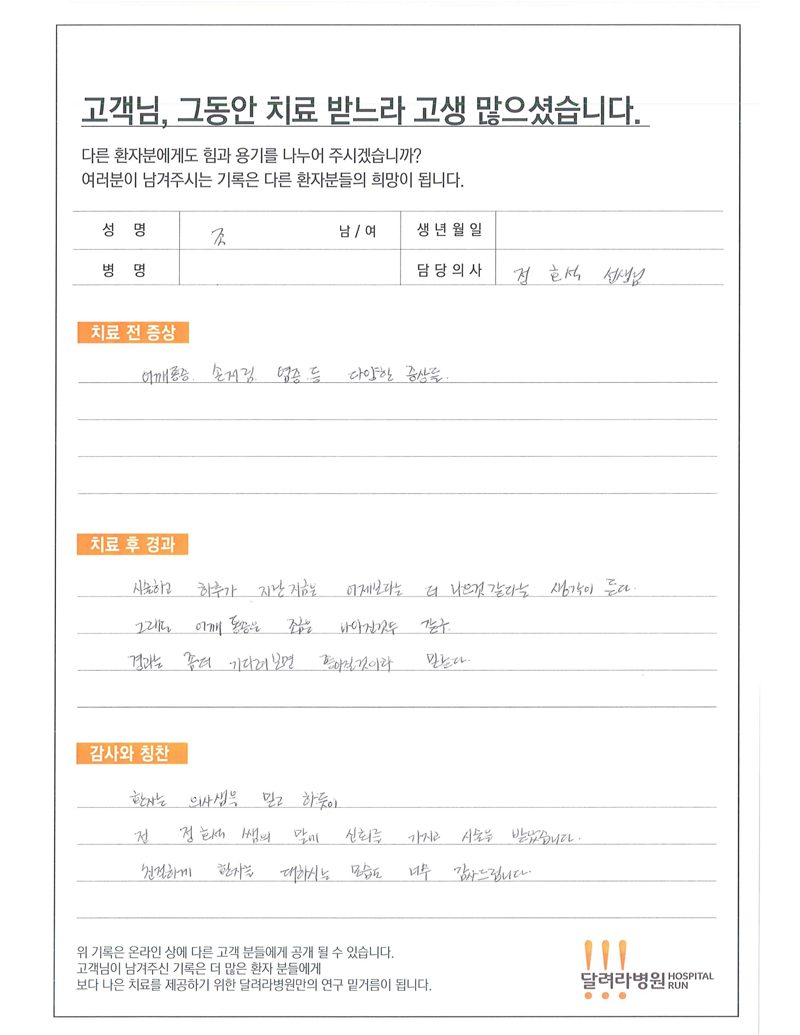 고객님, 그동안 치료 받느라 고생 많으셨습니다.
다른 환자분에게도 힘과 용기를 나누어 주시겠습니까?
여러분이 남겨주시는 기록은 다른 환자분들의 희망이 됩니다.
성 명 조 남 / 여 생년월일
병 명 담당의사 정 효석 선생님
치료 전 증상
어깨통증. 손저림. 염증 등 다양한 증상들.
치료 후 경과
시술하고 하루가 지난 지금은 어제보다는 더 나은것 같다는 생각이 든다.
그래도 어깨 통증은 조금은 나아진것두 같구.
결과는 좀더 기다려보면 좋아질것이라 믿는다.
감사와 칭찬
환자는 의사쌤을 믿고 하듯이
전 정효석 쌤의 말에 신뢰를 가지고 시술을 받았습니다.
친절하게 환자를 대하시는 모습도 너무 감사드립니다.
위 기록은 온라인 상에 다른 고객 분들에게 공개 될 수 있습니다.
고객님이 남겨주신 기록은 더 많은 환자 분들에게
보다 나은 치료를 제공하기 위한 달려라병원만의 연구 밑거름이 됩니다.
달려라병원 HOSPITAL RUN